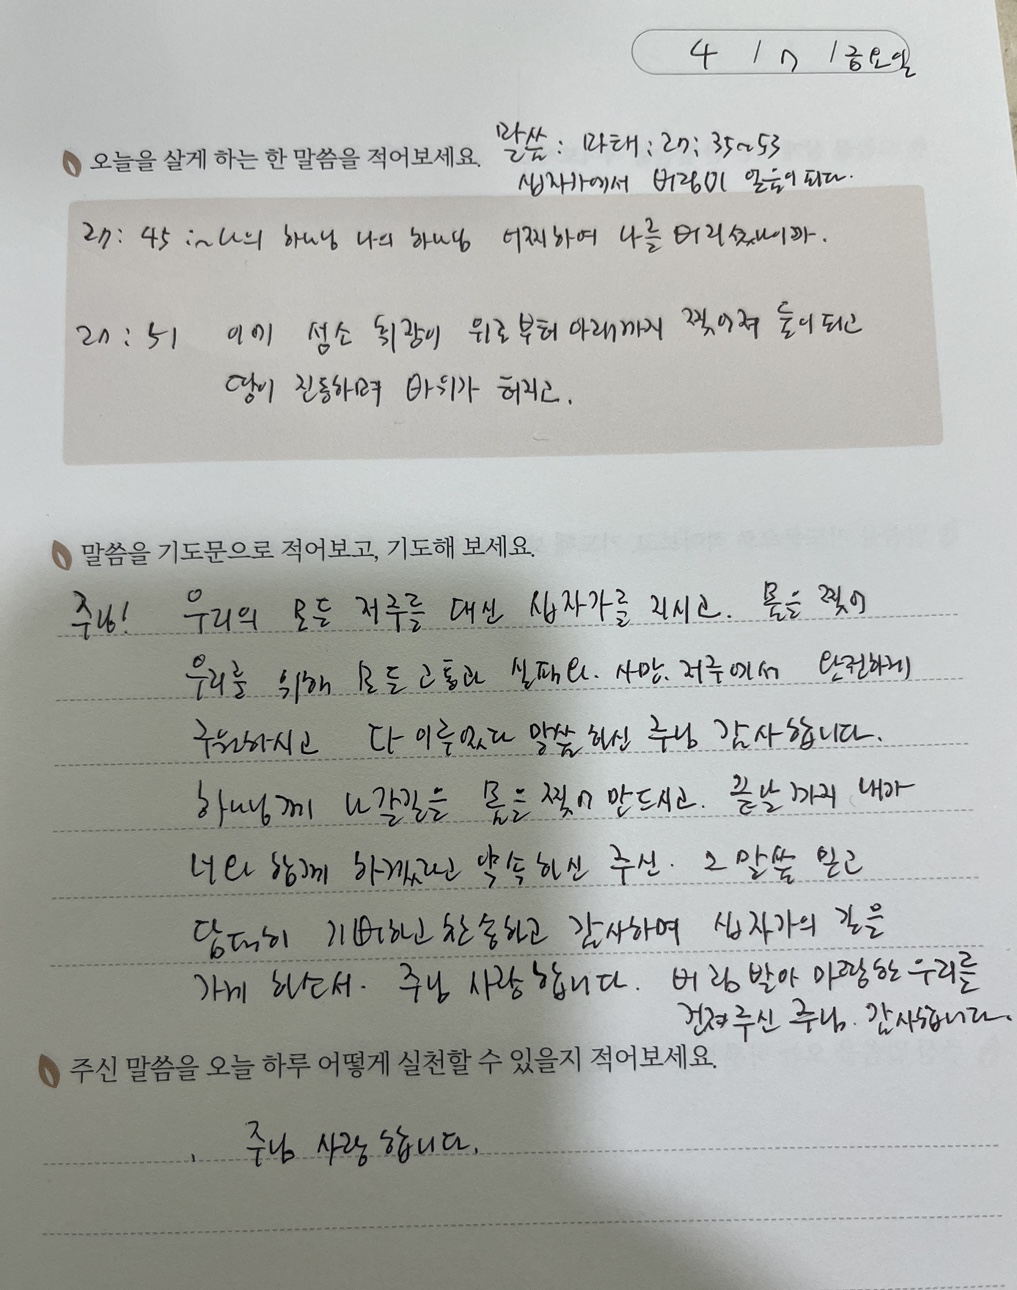 4 / 7 / 금요일
오늘을 살게 하는 한 말씀을 적어보세요.
말씀 : 마태 : 27 : 35~53
십자가에서 버림이 일음이 되다.
27 : 45 :~ 나의 하나님 나의 하나님 어찌하여 나를 버리셨나이까.
27 : 51 이에 성소 휘장이 위로부터 아래까지 찢어져 둘이 되고
땅이 진동하며 바위가 터지고.
말씀을 기도문으로 적어보고, 기도해 보세요.
주님! 우리의 모든 저주를 대신 십자가를 지시고. 몸을 찢어
우리를 위해 모든 고통과 실패와. 사망. 저주에서 완전하게
구원하시고 다 이루었다 말씀하신 주님 감사합니다.
하나님께 나갈길을 몸을 찢어 만드시고. 끝날까지 내가
너와 함께 하겠다고 약속하신 주신. 그 말씀 믿고
담대히 기뻐하고 찬송하고 감사하며 십자가의 길을
가게 하소서. 주님 사랑합니다. 버림받아 마땅한 우리를
건져주신 주님. 감사합니다.
주신 말씀을 오늘 하루 어떻게 실천할 수 있을지 적어보세요.
주님 사랑합니다.